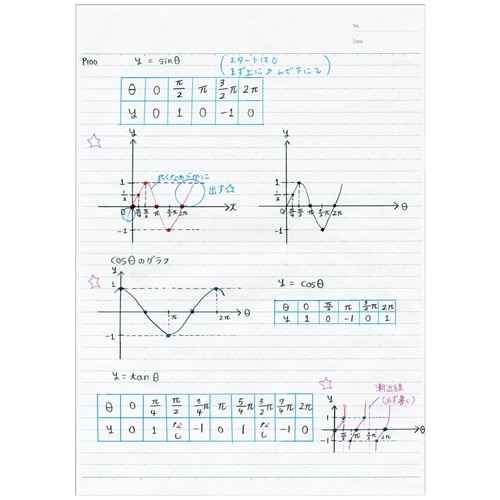 No.
Date
P100 y = sinθ (スタートは0
まず上にのんで下に2)
θ 0 π/2 π 3/2π 2π
y 0 1 0 -1 0
☆ y y
丸くなめらかに
1 1
1/2 1/2
出す☆
0 π/6 π/2 π 3/2π 2π x
π/6 π/2 π 3/2π 2π θ
-1 -1
cosθのグラフ
☆ y
1
π 2π θ
-1
y = cosθ
θ 0 π/2 π 3/2π 2π
y 1 0 -1 0 1
y = tanθ
θ 0 π/4 π/2 3/4π π 5/4π 3/2π 7/4π 2π
y 0 1 なし -1 0 1 なし -1 0
☆ 漸近線
(必ず書く)
y
1
π/2 π 3/2π 2π θ
-1